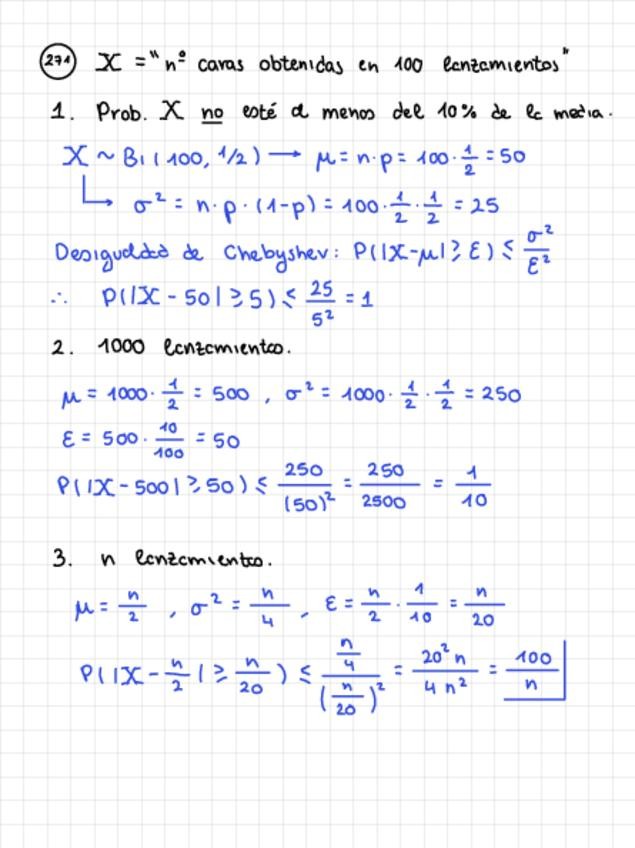 271 X = "nº caras obtenidas en 100 lanzamientos"
1. Prob. X no esté a menos del 10% de la media.
X ~ Bi(100, 1/2) → μ = n·p = 100·1/2 = 50
↳ σ² = n·p·(1-p) = 100·1/2·1/2 = 25
Desigualdad de Chebyshev: P(|X-μ| ≥ ε) ≤ σ²/ε²
∴ P(|X - 50| ≥ 5) ≤ 25/5² = 1
2. 1000 lanzamientos.
μ = 1000·1/2 = 500 , σ² = 1000·1/2·1/2 = 250
ε = 500·10/100 = 50
P(|X - 500| ≥ 50) ≤ 250/(50)² = 250/2500 = 1/10
3. n lanzamientos.
μ = n/2 , σ² = n/4 , ε = n/2·1/10 = n/20
P(|X - n/2| ≥ n/20) ≤ (n/4)/(n/20)² = 20²n/4n² = 100/n